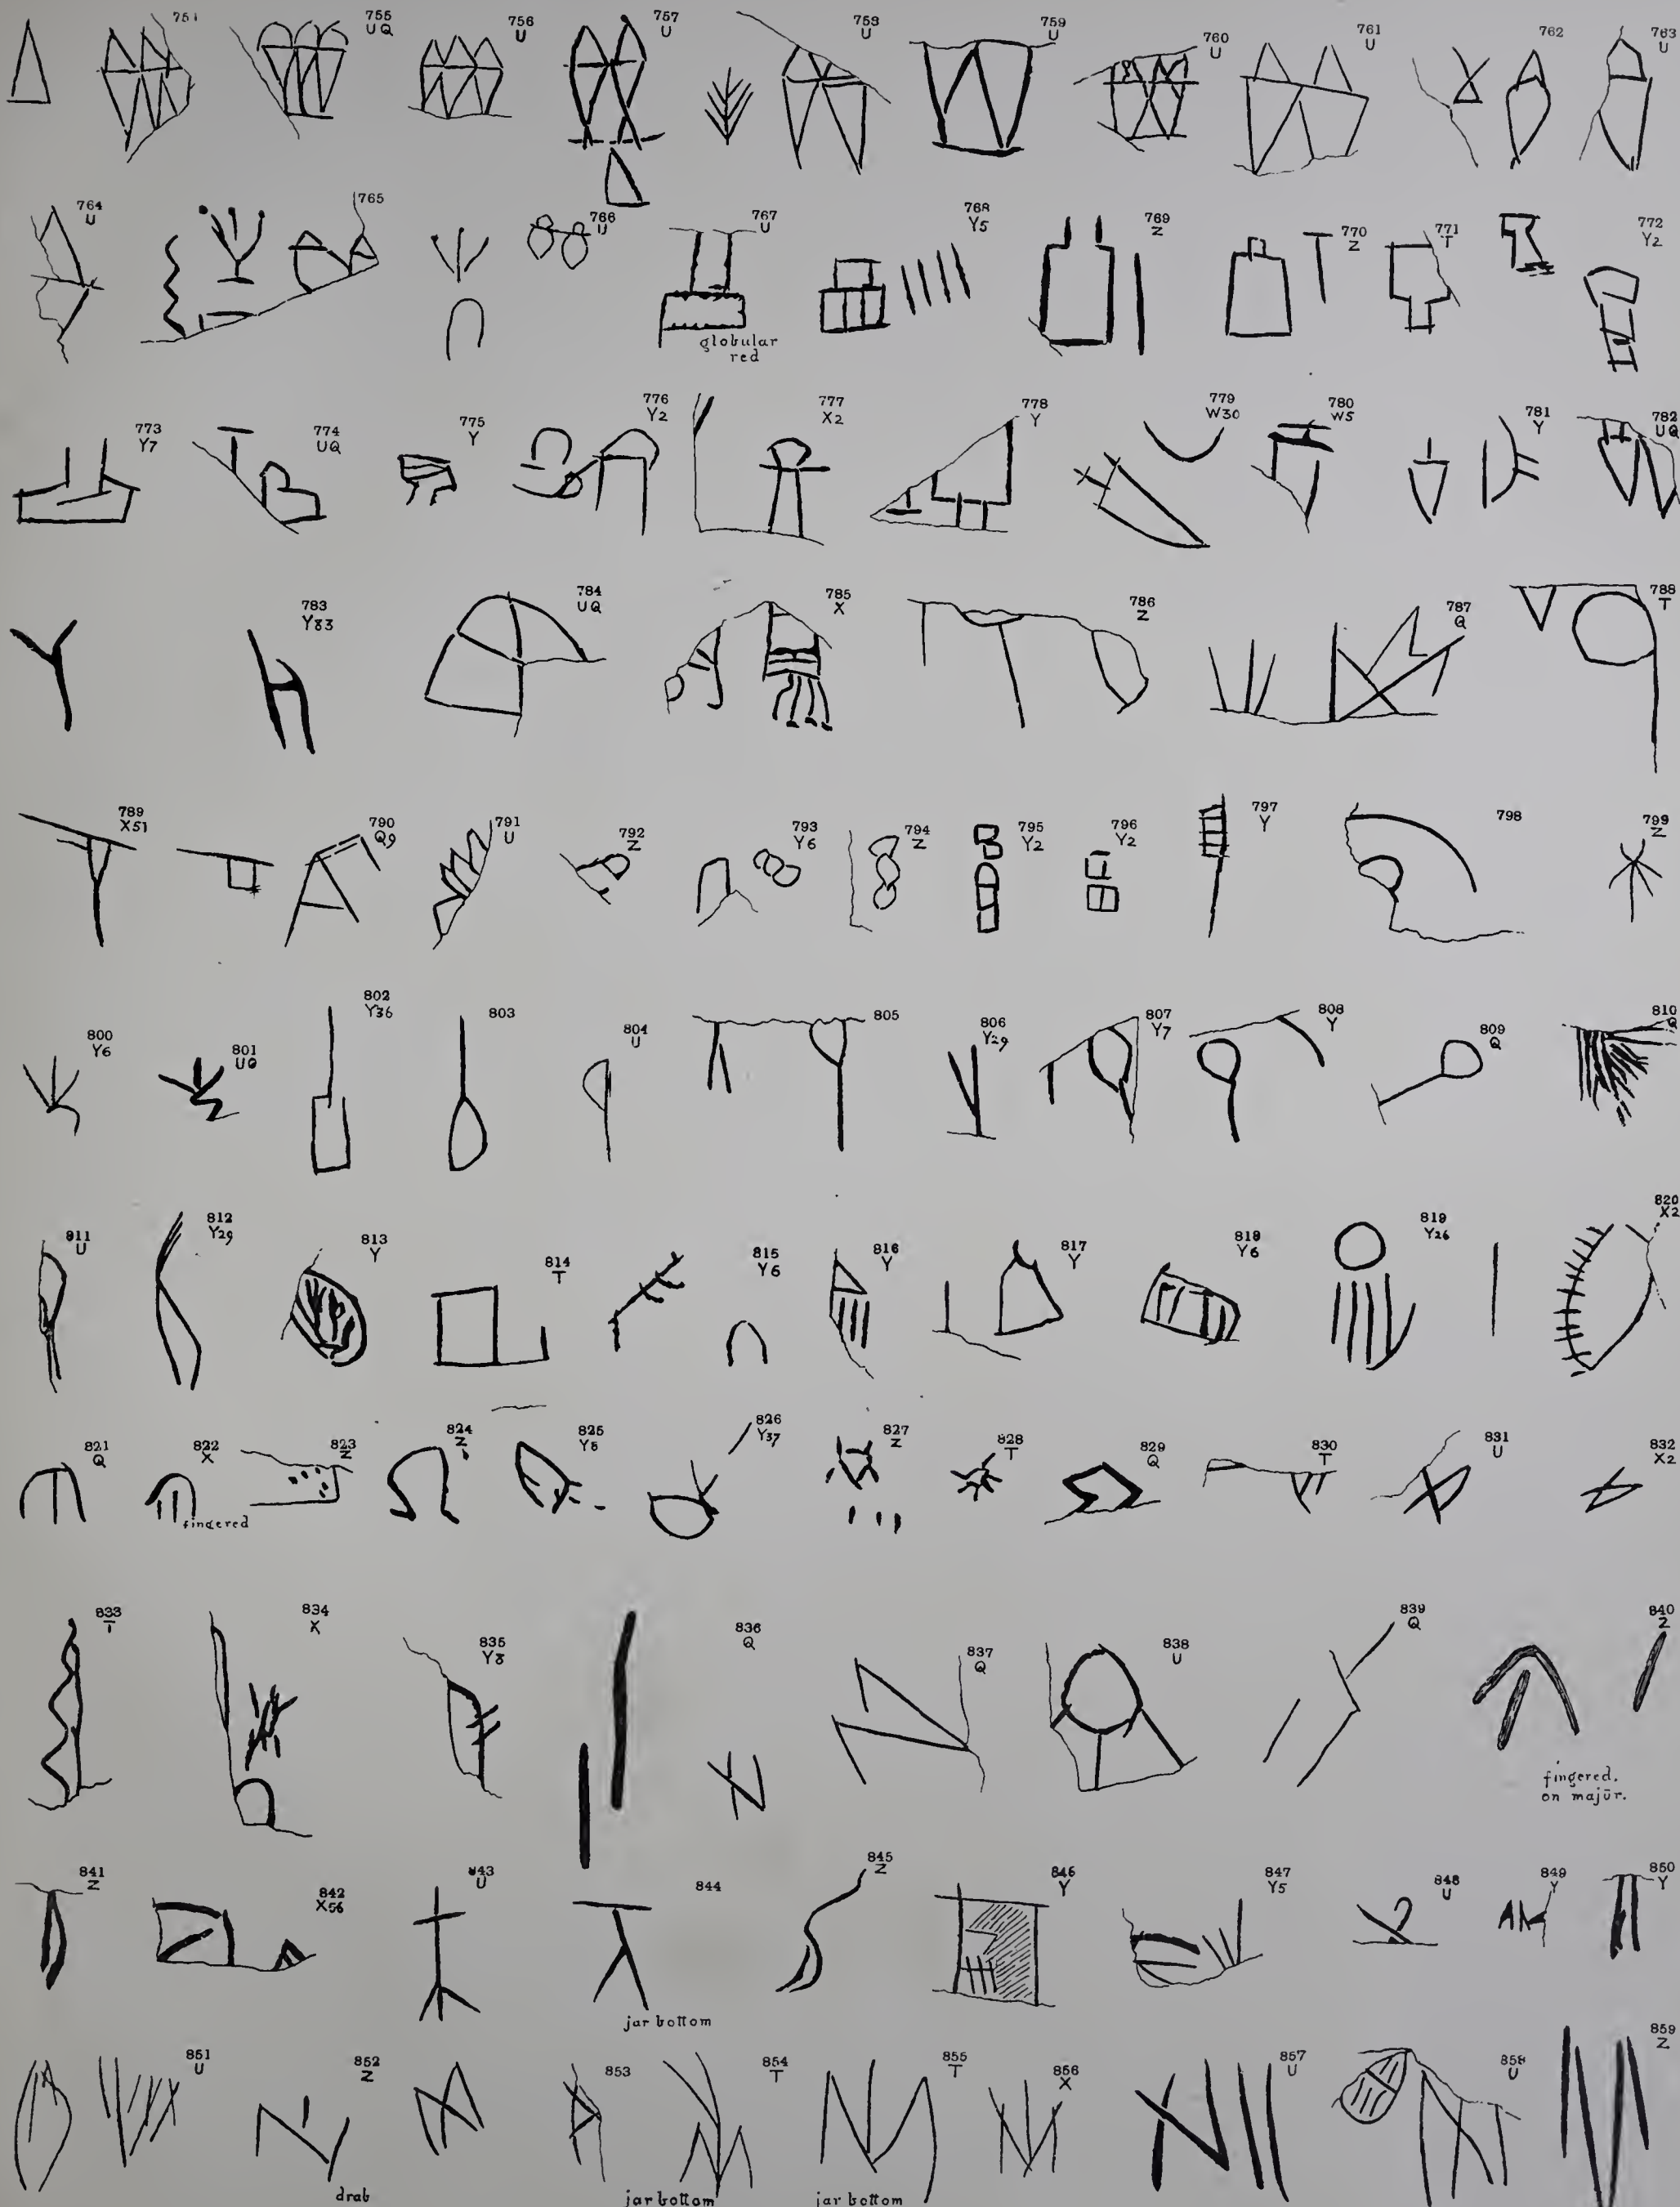 751
755
UQ
756
U
757
U
758
U
759
U
760
U
761
U
762
763
U
764
U
765
766
U
767
U
globular
red
768
Y5
769
Z
770
Z
771
T
772
Y2
773
Y7
774
UQ
775
Y
776
Y2
777
X2
778
Y
779
W30
780
W5
781
Y
782
UQ
783
Y83
784
UQ
785
X
786
Z
787
Q
788
T
789
X51
790
Q9
791
U
792
Z
793
Y6
794
Z
795
Y2
796
Y2
797
Y
798
799
Z
800
Y6
801
UQ
802
Y36
803
804
U
805
806
Y29
807
Y7
808
Y
809
Q
810
Q
811
U
812
Y29
813
Y
814
T
815
Y6
816
Y
817
Y
818
Y6
819
Y26
820
X2
821
Q
822
X
fingered
823
Z
824
Z
825
Y8
826
Y37
827
Z
828
T
829
Q
830
T
831
U
832
X2
833
T
834
X
835
Y8
836
Q
837
Q
838
U
839
Q
840
Z
fingered.
on majūr.
841
Z
842
X56
843
U
844
jar bottom
845
Z
846
Y
847
Y5
848
U
849
Y
850
Y
851
U
852
Z
drab
853
854
T
jar bottom
855
T
jar bottom
856
X
857
U
858
U
859
Z